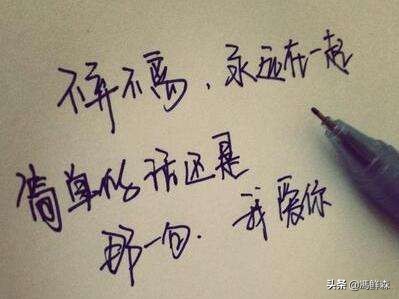 不弃不离、永远在一起
简单的话还是
那一句. 我爱你
头条 @馮鲜森